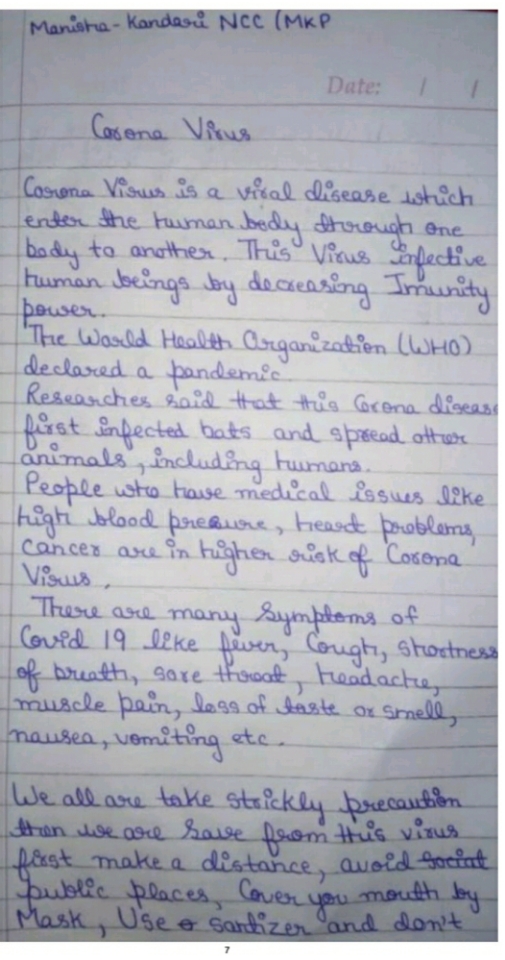 Manisha-Kandari NCC (MKP
Date: / /
Corona Virus
Corona Virus is a viral disease which
enter the human body through one
body to another. This Virus infective
human beings by decreasing Imunity
power.
The World Health Organization (WHO)
declared a pandemic.
Researches said that this Corona disease
first infected bats and spread other
animals, including humans.
People who have medical issues like
high blood presure, heart problems,
cancer are in higher risk of Corona
Virus.
There are many Symptoms of
Covid 19 like fever, Cough, shortness
of breath, sore throat, headache,
muscle pain, loss of taste or smell,
nausea, vomiting etc.
We all are take strickly precaution
then we are save from this virus
first make a distance, avoid social
public places, Cover you mouth by
Mask, Use sanitizer and don't
7